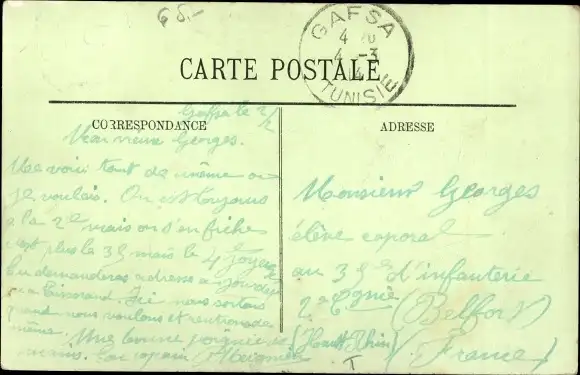 65.-
GAFSA
4
4 -3
14
TUNISIE
CARTE POSTALE
CORRESPONDANCE
ADRESSE
Gafsa le 2/2
Mon vieux Georges.
Me voici tout de même ou
je voulais. On est toujours
à la 2e mais on s'en fiche
c'est plus le 35 mais le 4e
Tu demanderas adresse a
a Ici nous sortons
quand nous voulons et rentrons de
même. Une bonne poignée de
mains. Ton copain
Monsieur Georges
élève caporal
au 35e d'infanterie
2e Cgnie (Belfort)
(Haut Rhin) (France)
T